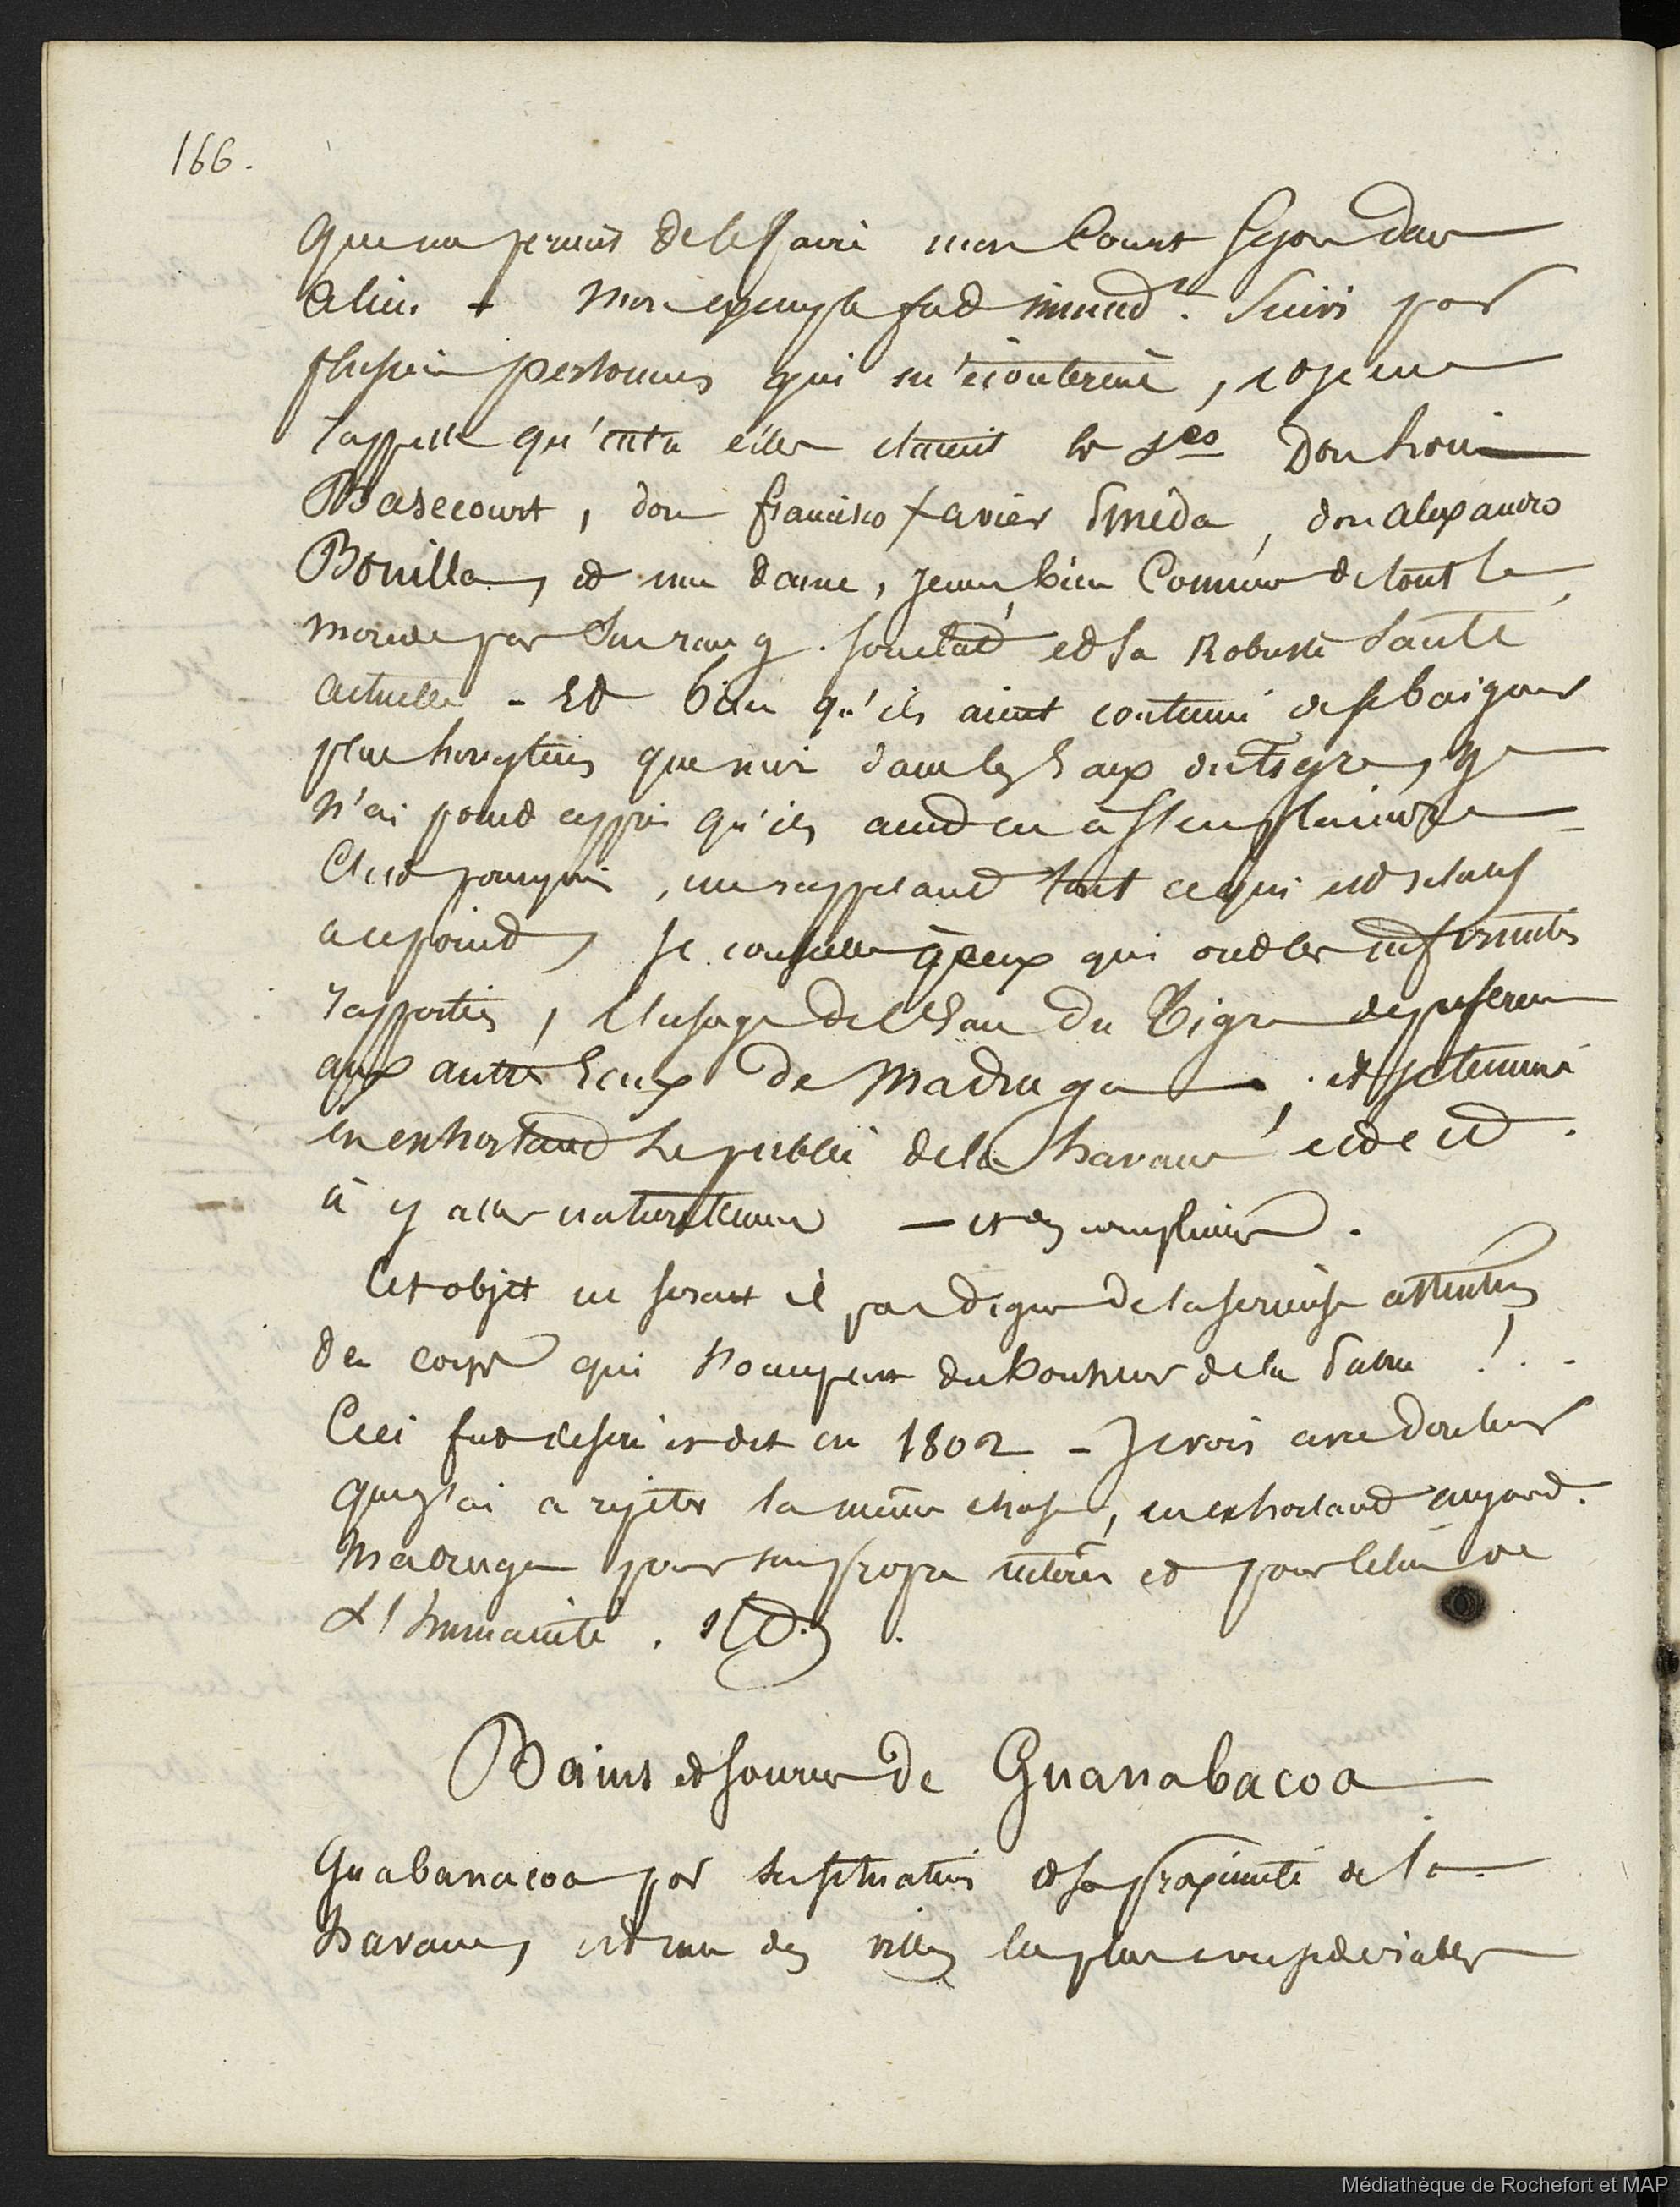 166.
que me permit de le faire mon Court Sejour dans
ce lieu + Mon exemple fut immed.t Suivi par
plusieurs personnes qui m'écouterent, et je me
rappelle qu'entre elles étaient les Srs Don Louis
Basecourt, don francisco Xavier Pineda, don alexandro
Bonilla, et une dame, jeune, bien Connue de tout le
monde par Son rang. Son état et Sa Robuste Santé
actuelle - Et bien qu'ils aient continué de se baigner
plus longtems que moi dans les Eaux du Tigre, je
n'ai point appris qu'ils aient eu à s'en plaindre
C'est pourquoi, me rappelant tout ce qui est relatif
a ce point, je conseille à ceux qui ont les infirmités
rapportées, l'usage de l'Eau du Tigre de preference
aux autres Eaux de Madruga, et je termine
en exhortant le public de la havane et et et.
à y aller
Cet objet ne serait il pas digne de la serieuse attention
des corps qui s'occupent du bonheur de la Patrie !..
Ceci fut ecrit et dit en 1802 - Je vois avec douleur
que j'ai a repeter la même chose, en exhortant aujourd.
Madruga pour son propre interêt et pour celui de
L'humanité.
Bains et sources de Guanabacoa
Guabanacoa par sa situation et sa proximité de la
havane, est une des villes les plus considerables
Médiathèque de Rochefort et MAP